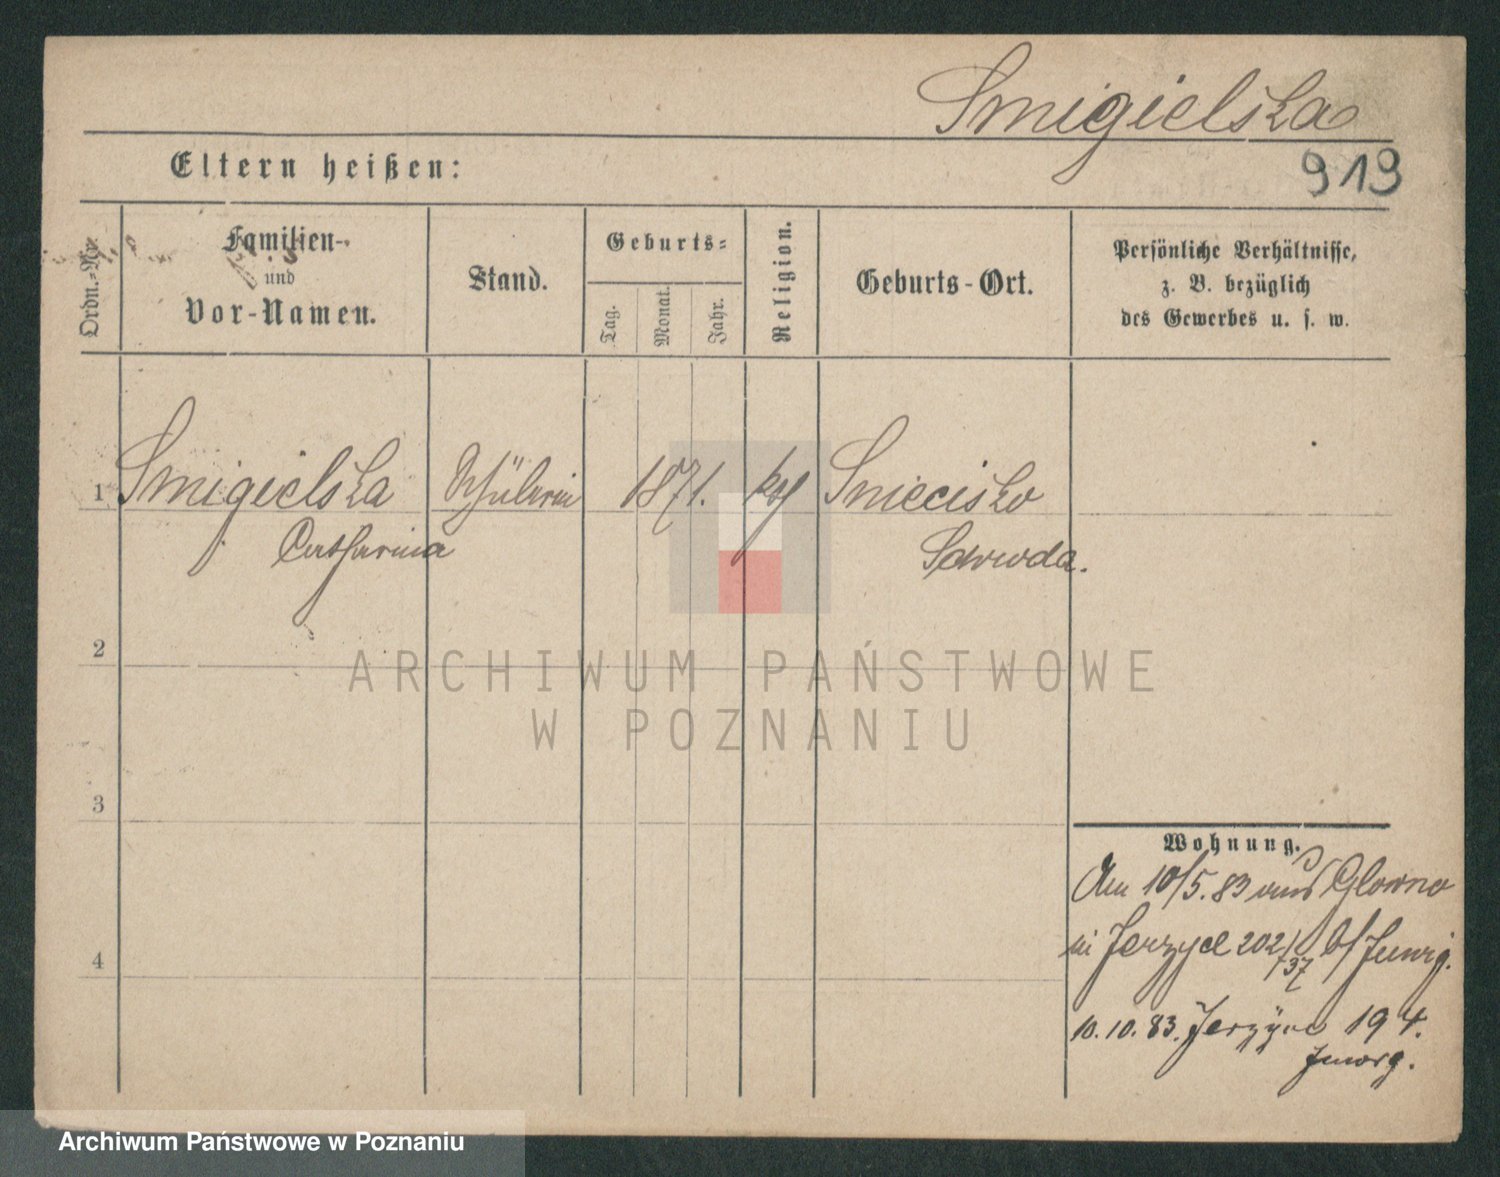 Smigielska
Eltern heißen:
919
Ordn.-Nr.
Familien-
und
Vor-Namen.
Stand.
Geburts-
Tag.
Monat.
Jahr.
Religion.
Geburts-Ort.
Persönliche Verhältnisse,
z. B. bezüglich
des Gewerbes u. s. w.
1 Smigielska Schülerin 1871. kth Sniecisko
Catharina Schroda.
2
3
4
ARCHIWUM PAŃSTWOWE
W POZNANIU
Wohnung.
Am 10/5.83 aus Glowno
in Jerzyce 202/37 b/
10.10.83. Jerzyce 194.
Archiwum Państwowe w Poznaniu